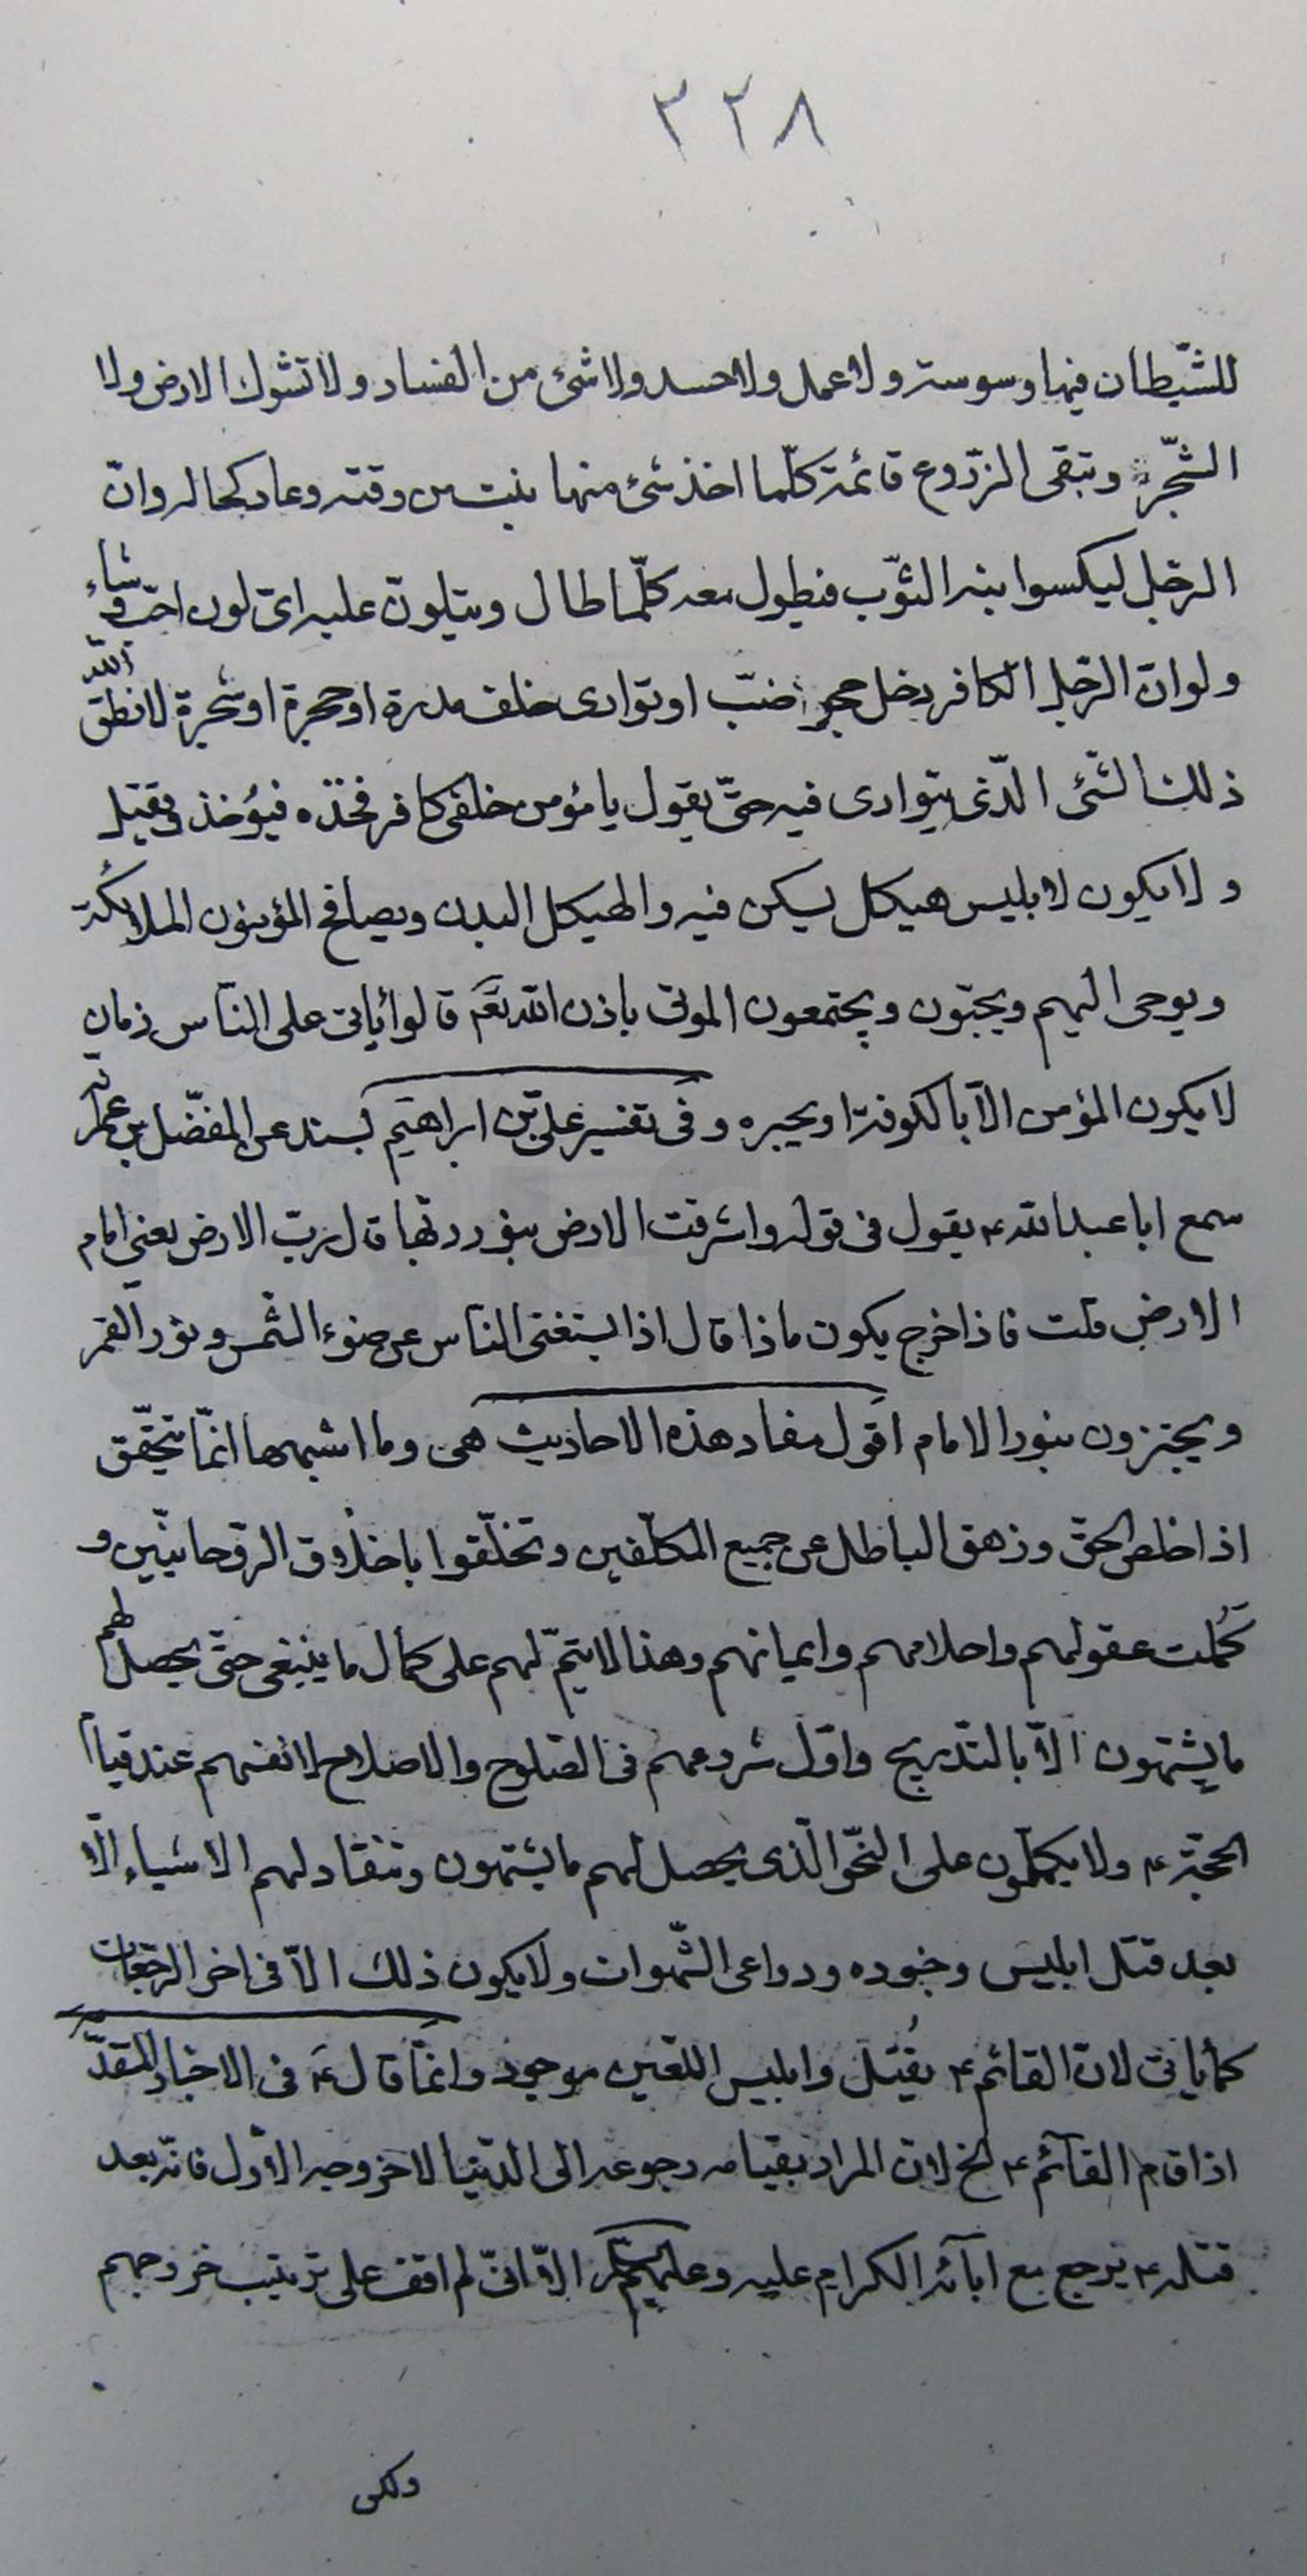 ٣٢٨
للشّيطان فيها وسوسة ولا عمل ولا حسد ولا شئ من الفساد ولا تشوك الارض ولا
الشّجر وتبقى الزّروع قائمة كلّما اخذ شئ منها نبت من وقته وعاد كحاله وانّ
الرّجل ليكسوا ابنه الثّوب فيطول معه كلّما طال ويتلون عليه اىّ لون احبّ وشاء
ولو انّ الرّجل الكافر دخل حجر ضبّ او توارى خلف مدرة او حجرة او شجرة لانطق الله
ذلك الشّئ الّذى يتوارى فيه حتّى يقول يا مؤمن خلفى كافر فخذه فيُؤخذ ويقتل
ولا يكون لابليس هيكل يسكن فيه والهيكل البدن ويصافح المؤمنون الملائكة
ويوحى اليهم ويحيّون ويجتمعون الموتى باذن الله تعم قالوا يأتى على النّاس زمان
لا يكون المؤمن الّا بالكوفة او يحيره وفى تفسير علىّ بن ابراهيم بسنده عن المفضّل بن عمر انّه
سمع ابا عبد الله ع يقول فى قوله واشرقت الارض بنور ربّها قال ربّ الارض يعنى امام
الارض قلت فاذا خرج يكون ماذا قال اذا يستغنى الناس عن ضوء الشّمس ونور القمر
ويجتزون بنور الامام اقول مفاد هذه الاحاديث هى وما اشبهها انّما يتحقّق
اذا خلص الحقّ وزهق الباطل عن جميع المكلّفين وتخلّقوا باخلاق الرّوحانيّين و
كُملت عقولهم واحلامهم وايمانهم وهذا لا يتمّ لهم على كمال ما ينبغى حتّى يحصل لهم
ما يشتهون الّا بالتدريج واوّل شروعهم فى الصّلوح والاصلاح لانفسهم عند قيام
الحجّة ع ولا يكملون على النّحو الّذى يحصل لهم ما يشتهون وتنقاد لهم الاشياء الّا
بعد قتل ابليس وجنوده ودواعى الشّهوات ولا يكون ذلك الّا فى اخر الرّجعات
كما يأتى لانّ القائم ع يُقتل وابليس اللعين موجود وانّما قال ع فى الاخبار المتقدّمة
اذا قام القائم ع الخ لانّ المراد بقيامه رجوعه الى الدّنيا لا خروجه الاوّل فانّه بعد
قتله ع يرجع مع ابآئه الكرام عليه وعليهم السّلام الّا انّى لم اقف على ترتيب خروجهم
ولكن